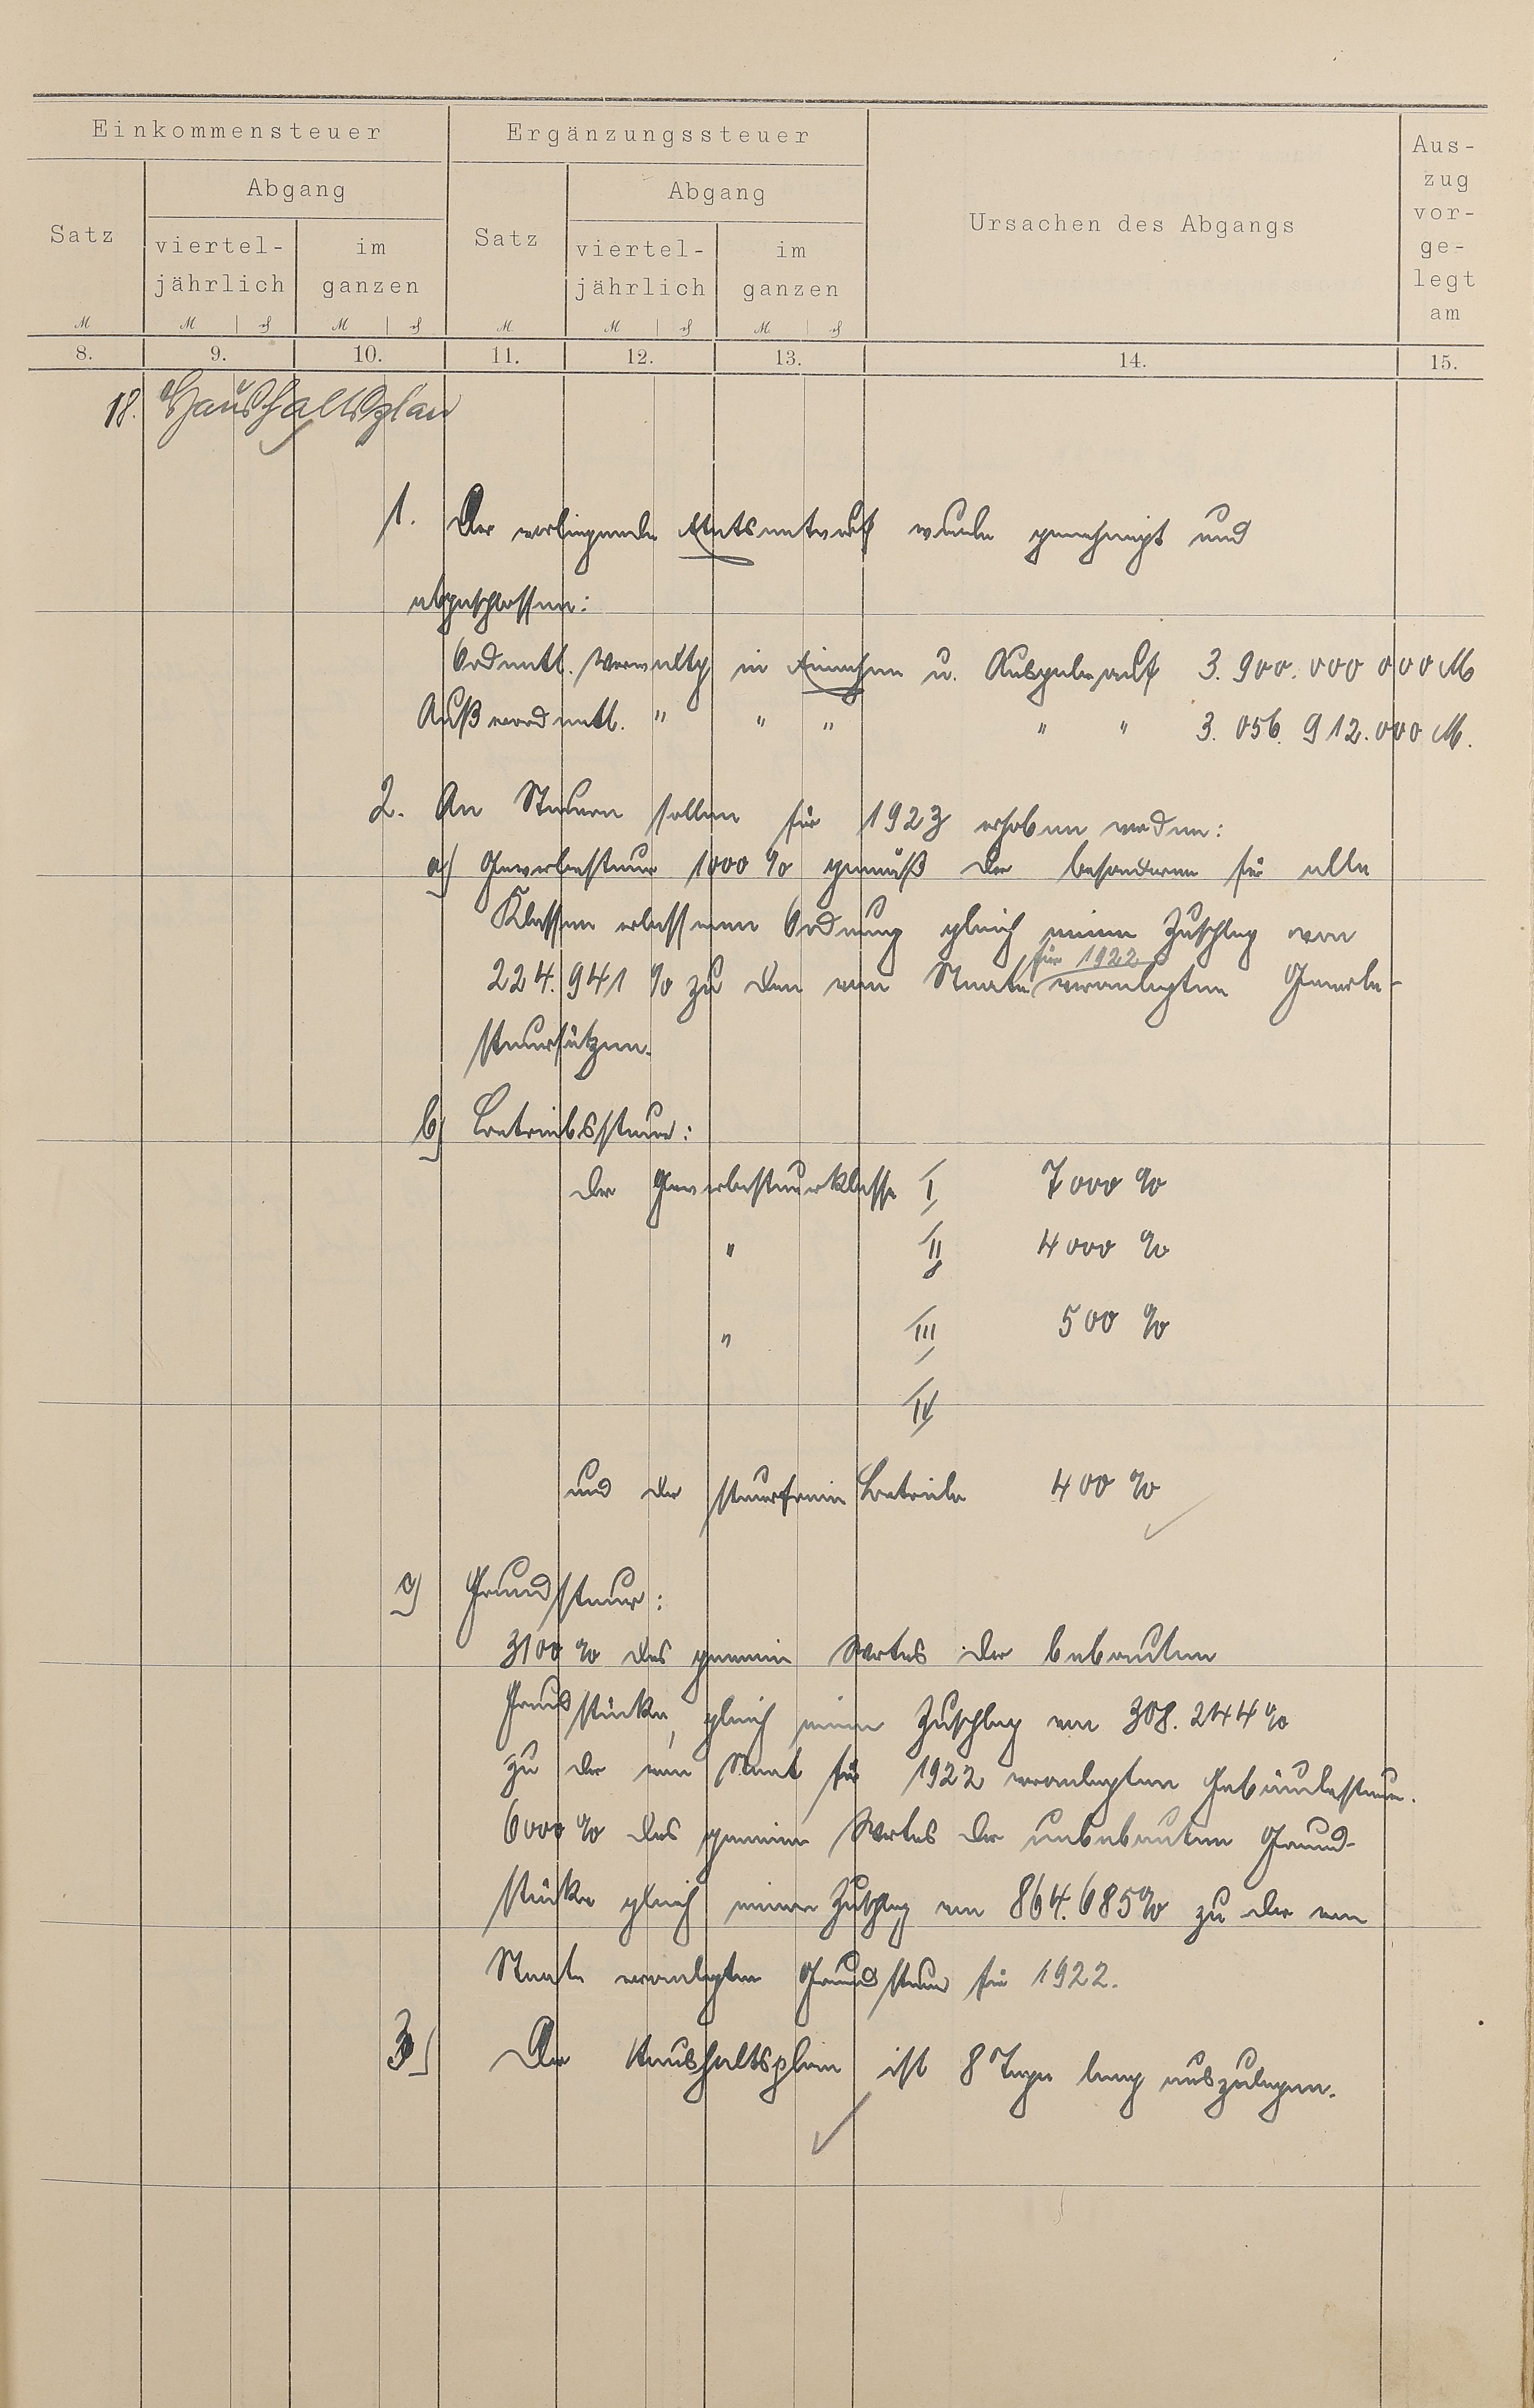 Einkommensteuer
Ergänzungssteuer
Ursachen des Abgangs
Aus-
zug
vor-
ge-
legt
am
Satz
Abgang
viertel-
jährlich
im
ganzen
Satz
Abgang
viertel-
jährlich
im
ganzen
M M ₰ M ₰ M M ₰ M ₰
8. 9. 10. 11. 12. 13. 14. 15.
18. Haushaltsplan
1. Der vorliegende Etatsentwurf wurde genehmigt und
abgeschlossen:
Ordentl. Verwaltg in Einnahme u. Ausgabe auf 3.900.000 000 M
Außerordentl. " " " " " 3.056.912.000 M.
2. An Steuern sollen für 1923 erhoben werden:
a) Gewerbesteuer 1000 % gemäß der besonderen für alle
Klassen erlassenen Ordnung gleich einem Zuschlag von
für 1922
224.941 % zu den vom Staate veranlagten Gewerbe-
steuersätzen.
b) Betriebssteuer:
der Gewerbesteuerklasse I 7000 %
" II 4000 %
" III 500 %
IV
und der steuerfreien Betriebe 400 %
c) Grundsteuer:
3100 % des gemeinen Wertes der bebauten
Grundstücke, gleich einem Zuschlag von 308.244 %
zu der vom Staat für 1922 veranlagten Gebäudesteuer.
6000 % des gemeinen Wertes der unbebauten Grund-
stücke gleich einem Zuschlag von 864.685 % zu der vom
Staate veranlagten Grundsteuer für 1922.
3) Der Haushaltsplan ist 8 Tage lang auszulegen.